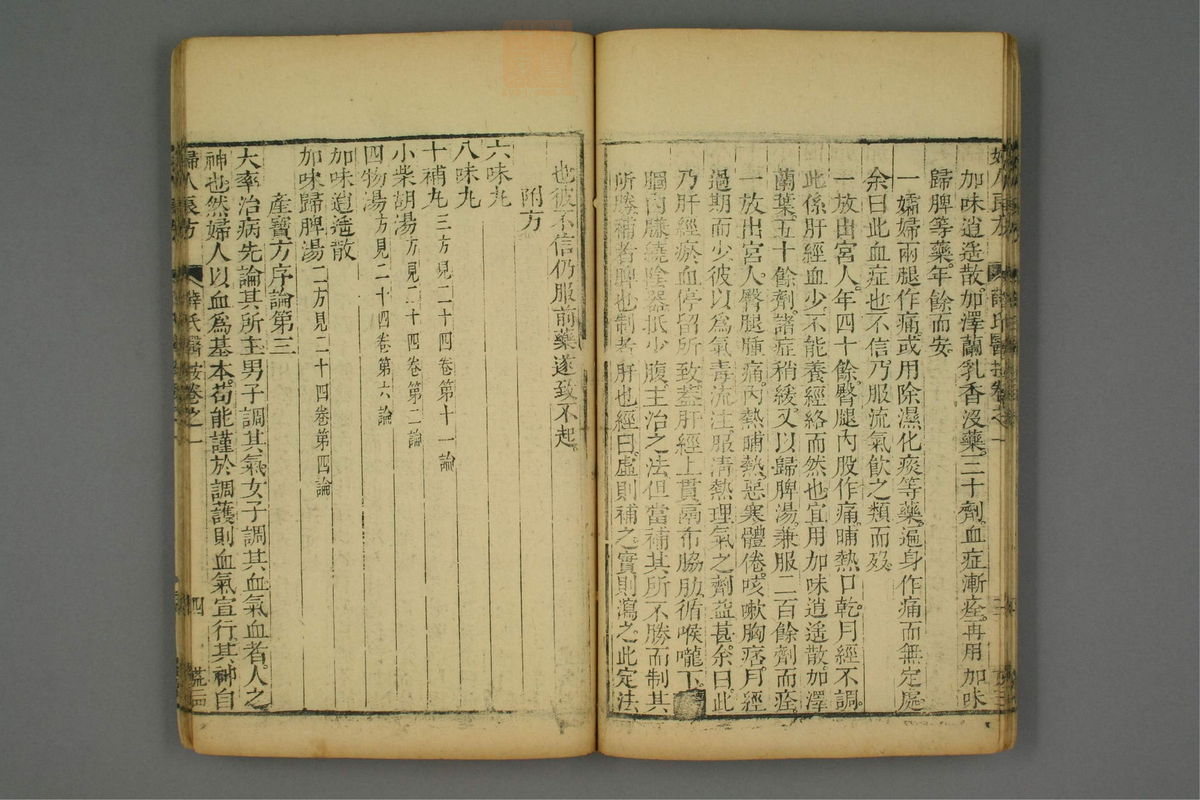 加味逍遥散加澤蘭乳香沒藥三十劑血症漸痊再用加味
歸脾等藥年餘而安
一孀婦兩腿作痛或用除濕化痰等藥遍身作痛而無定處
余曰此血症也不信乃服流氣飲之類而歿
一放出宮人年四十餘臀腿內股作痛晡熱口乾月經不調
此係肝經血少不能養經絡而然也宜用加味逍遥散加澤
蘭葉五十餘劑諸症稍緩又以歸脾湯兼服二百餘劑而痊
一放出宮人臀腿腫痛內熱晡熱惡寒體倦咳嗽胸痞月經
過期而少彼以為氣毒流注服清熱理氣之劑益甚余曰此
乃肝經瘀血停留所致蓋肝經上貫膈布脇肋循喉嚨下
腘內廉繞陰器抵少腹主治之法但當補其所不勝而制其
所勝補者脾也制者肝也經曰虛則補之實則瀉之此定法
也彼不信仍服前藥遂致不起
附方
六味丸
八味丸
十補丸三方見二十四卷第十一論
小柴胡湯方見二十四卷第二論
四物湯方見二十四卷第六論
加味逍遥散
加味歸脾湯二方見二十四卷第四論
產寶方序論第三
大率治病先論其所主男子調其氣女子調其血氣血者人之
神也然婦人以血為基本苟能謹於調護則血氣宣行其神自
婦人良方 薛氏醫按卷之一 四